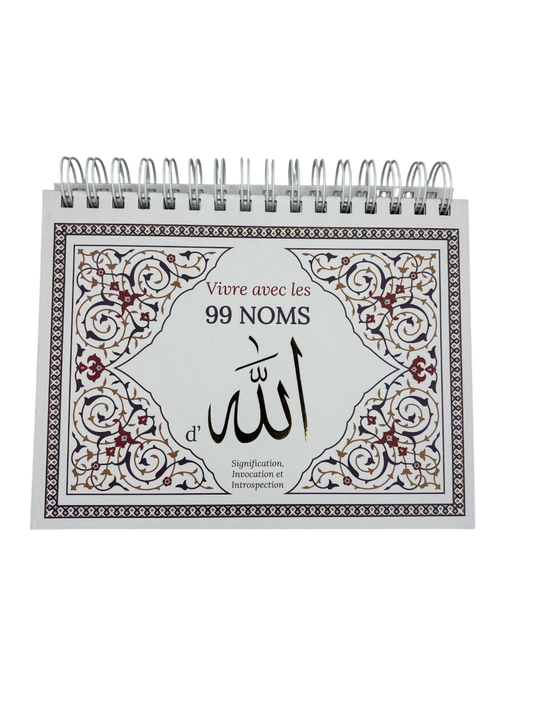 Vivre avec les
99 NOMS
d' الله
Signification,
Invocation et
Introspection